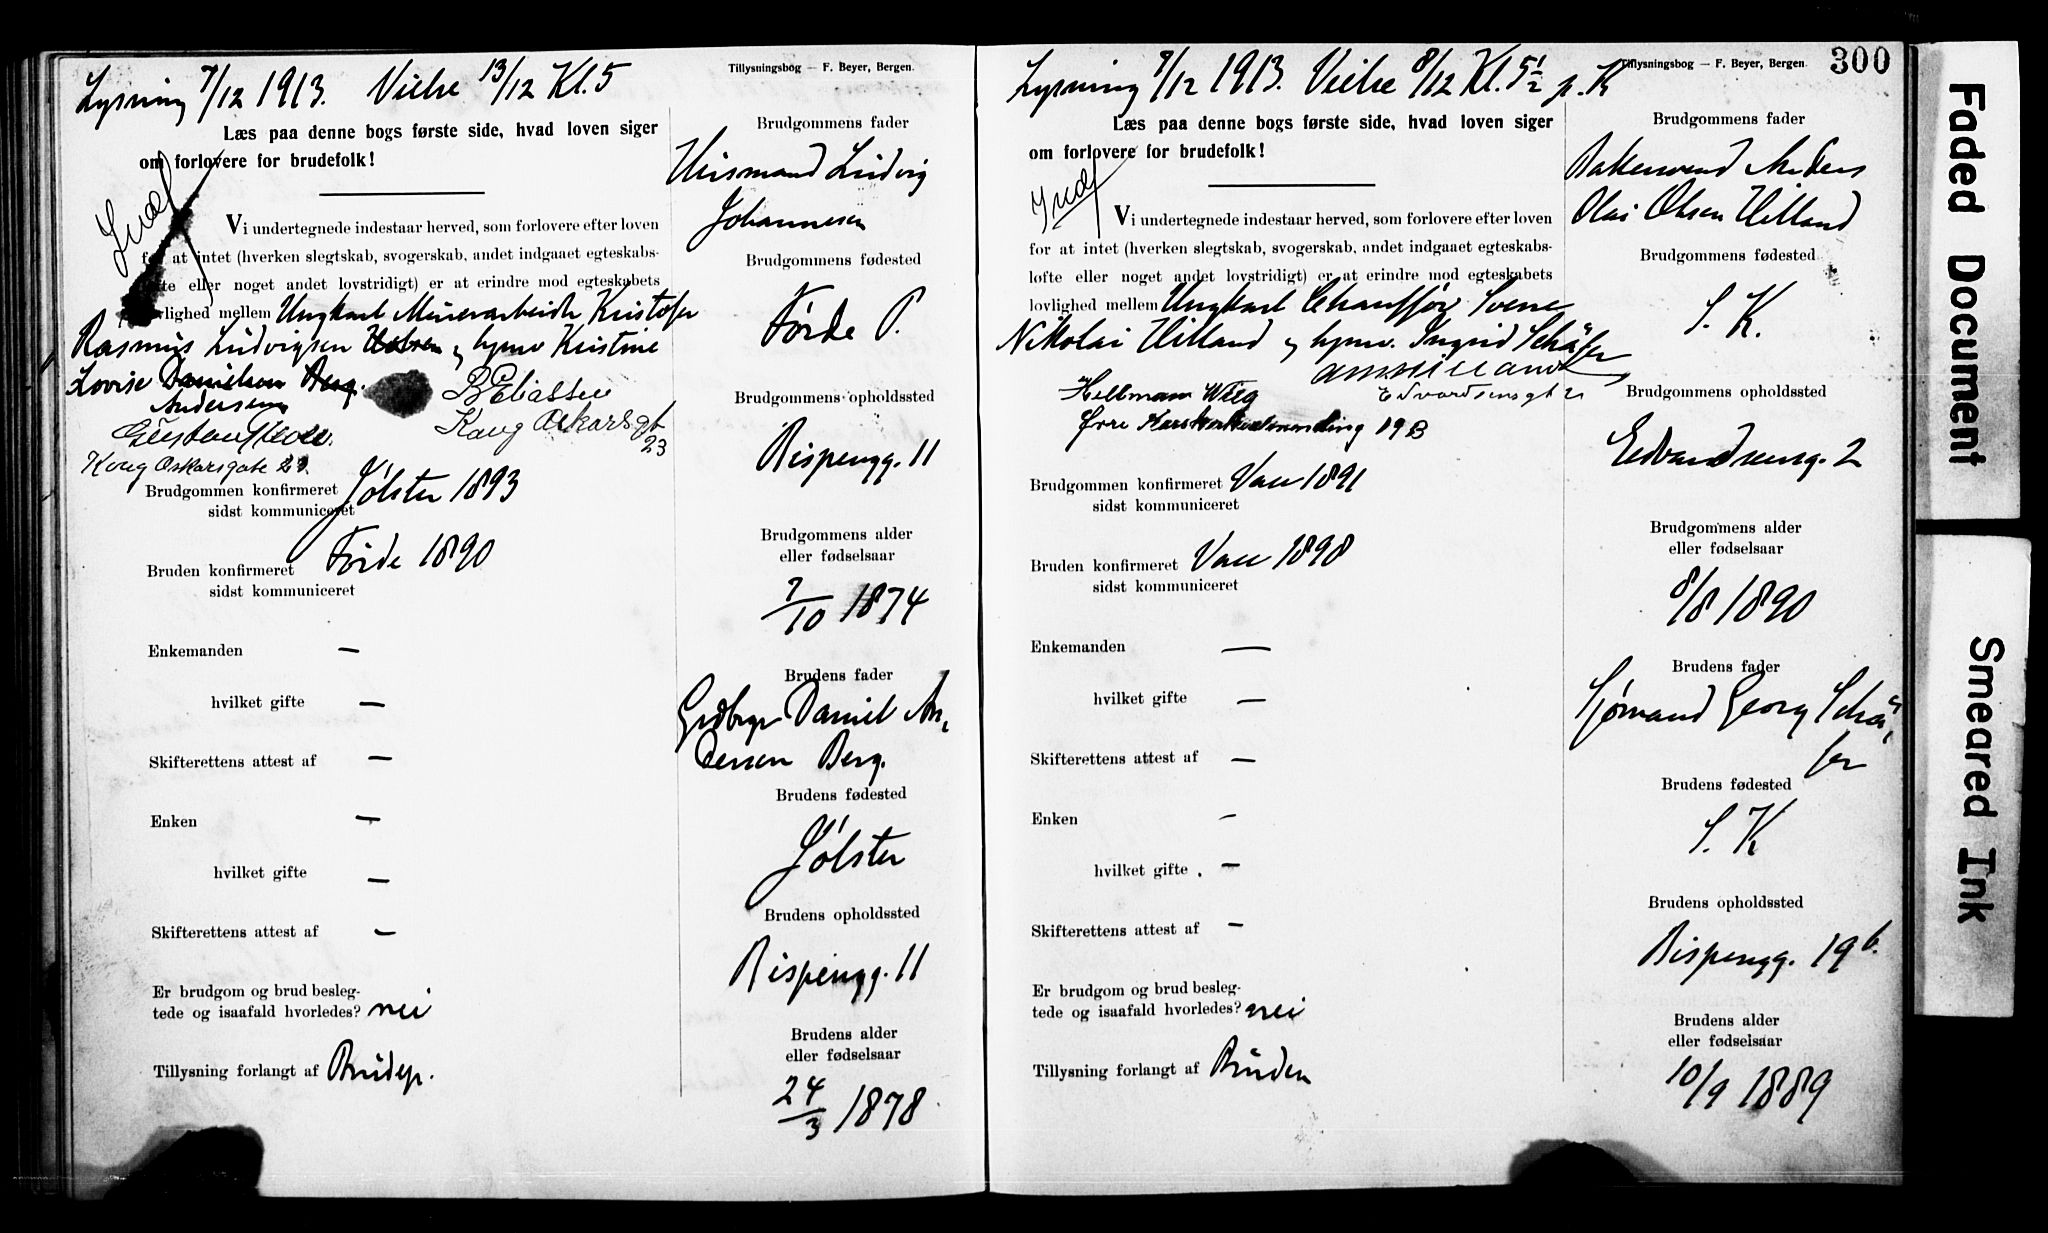 Lysning 7/12 1913. Vielse 13/12 Kl. 5
Tillysningsbog — F. Beyer, Bergen.
Læs paa denne bogs første side, hvad loven siger
om forlovere for brudefolk!
Indf
Vi undertegnede indestaar herved, som forlovere efter loven
for at intet (hverken slegtskab, svogerskab, andet indgaaet egteskabs-
løfte eller noget andet lovstridigt) er at erindre mod egteskabets
lovlighed mellem Ungkarl Minerarbeider Kristofer
Rasmus Ludvigsen og hpmv Kristine
Lovise Danielsen Berg.
Andersen
B Eliassen
Kong Oskarsgt
23
Kong Oskarsgate 23.
Brudgommen konfirmeret Jølster 1893
sidst kommuniceret
Bruden konfirmeret Førde 1890
sidst kommuniceret
Enkemanden —
hvilket gifte —
Skifterettens attest af —
Enken —
hvilket gifte —
Skifterettens attest af —
Er brudgom og brud besleg-
tede og isaafald hvorledes? nei
Tillysning forlangt af Brudep.
Brudgommens fader
Husmand Ludvig
Johannesen
Brudgommens fødested
Førde P.
Brudgommens opholdssted
Bispengg. 11
Brudgommens alder
eller fødselsaar
7/10 1874
Brudens fader
Grdbrgr Daniel An-
dersen Berg.
Brudens fødested
Jølster
Brudens opholdssted
Bispengg. 11
Brudens alder
eller fødselsaar
24/3 1878
Lysning 7/12 1913. Vielse 8/12 Kl. 5½ p. K
Tillysningsbog — F. Beyer, Bergen.
300
Læs paa denne bogs første side, hvad loven siger
om forlovere for brudefolk!
Indf
Vi undertegnede indestaar herved, som forlovere efter loven
for at intet (hverken slegtskab, svogerskab, andet indgaaet egteskabs-
løfte eller noget andet lovstridigt) er at erindre mod egteskabets
lovlighed mellem Ungkarl Chauffør Sverre
Nikolai Hilland og hpmv. Ingrid Schäfer
Hilland
Edvardsensgt 2
Øvre 19 B
Brudgommen konfirmeret Vaar 1891
sidst kommuniceret
Bruden konfirmeret Vaar 1898
sidst kommuniceret
Enkemanden —
hvilket gifte —
Skifterettens attest af —
Enken —
hvilket gifte —
Skifterettens attest af —
Er brudgom og brud besleg-
tede og isaafald hvorledes? nei
Tillysning forlangt af Bruden
Brudgommens fader
Bakersvend Anders
Olai Olsen Hilland
Brudgommens fødested
S. K.
Brudgommens opholdssted
Edvardseng. 2
Brudgommens alder
eller fødselsaar
8/8 1890
Brudens fader
Sjømand Georg Schä-
fer
Brudens fødested
S. K
Brudens opholdssted
Bispengg. 19 b.
Brudens alder
eller fødselsaar
10/9 1889
Faded Document
Smeared Ink